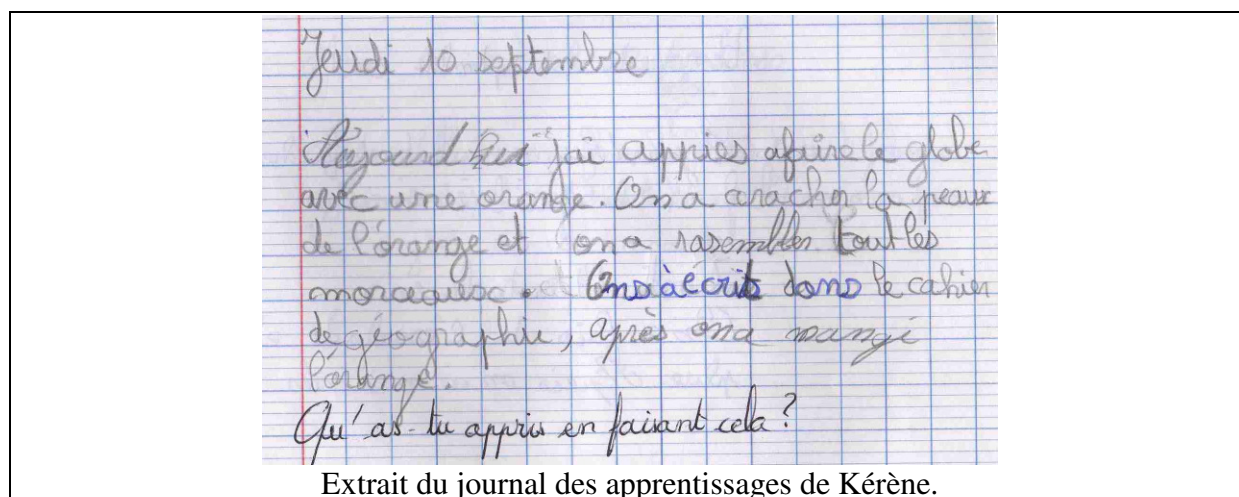 Jeudi 10 septembre
Aujourd'hui j'ai appies afaire le globe
avec une orange. On a aracher la peaux
de l'orange et on a rasembler tout les
morceaux. Ons à écrit dans le cahier
de géographie, après on a mangé
l'orange.
Qu'as-tu appris en faisant cela ?
Extrait du journal des apprentissages de Kérène.